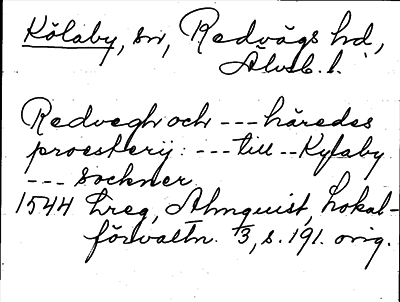 Kölaby, sn, Redvägs hd,
Älvsb. l.
Redvegh och --- häredes
proesterij: --- till -- Kylaby
--- sockner
1544 Lreg, Almquist, Lokal-
förvaltn. 3, s. 191. orig.